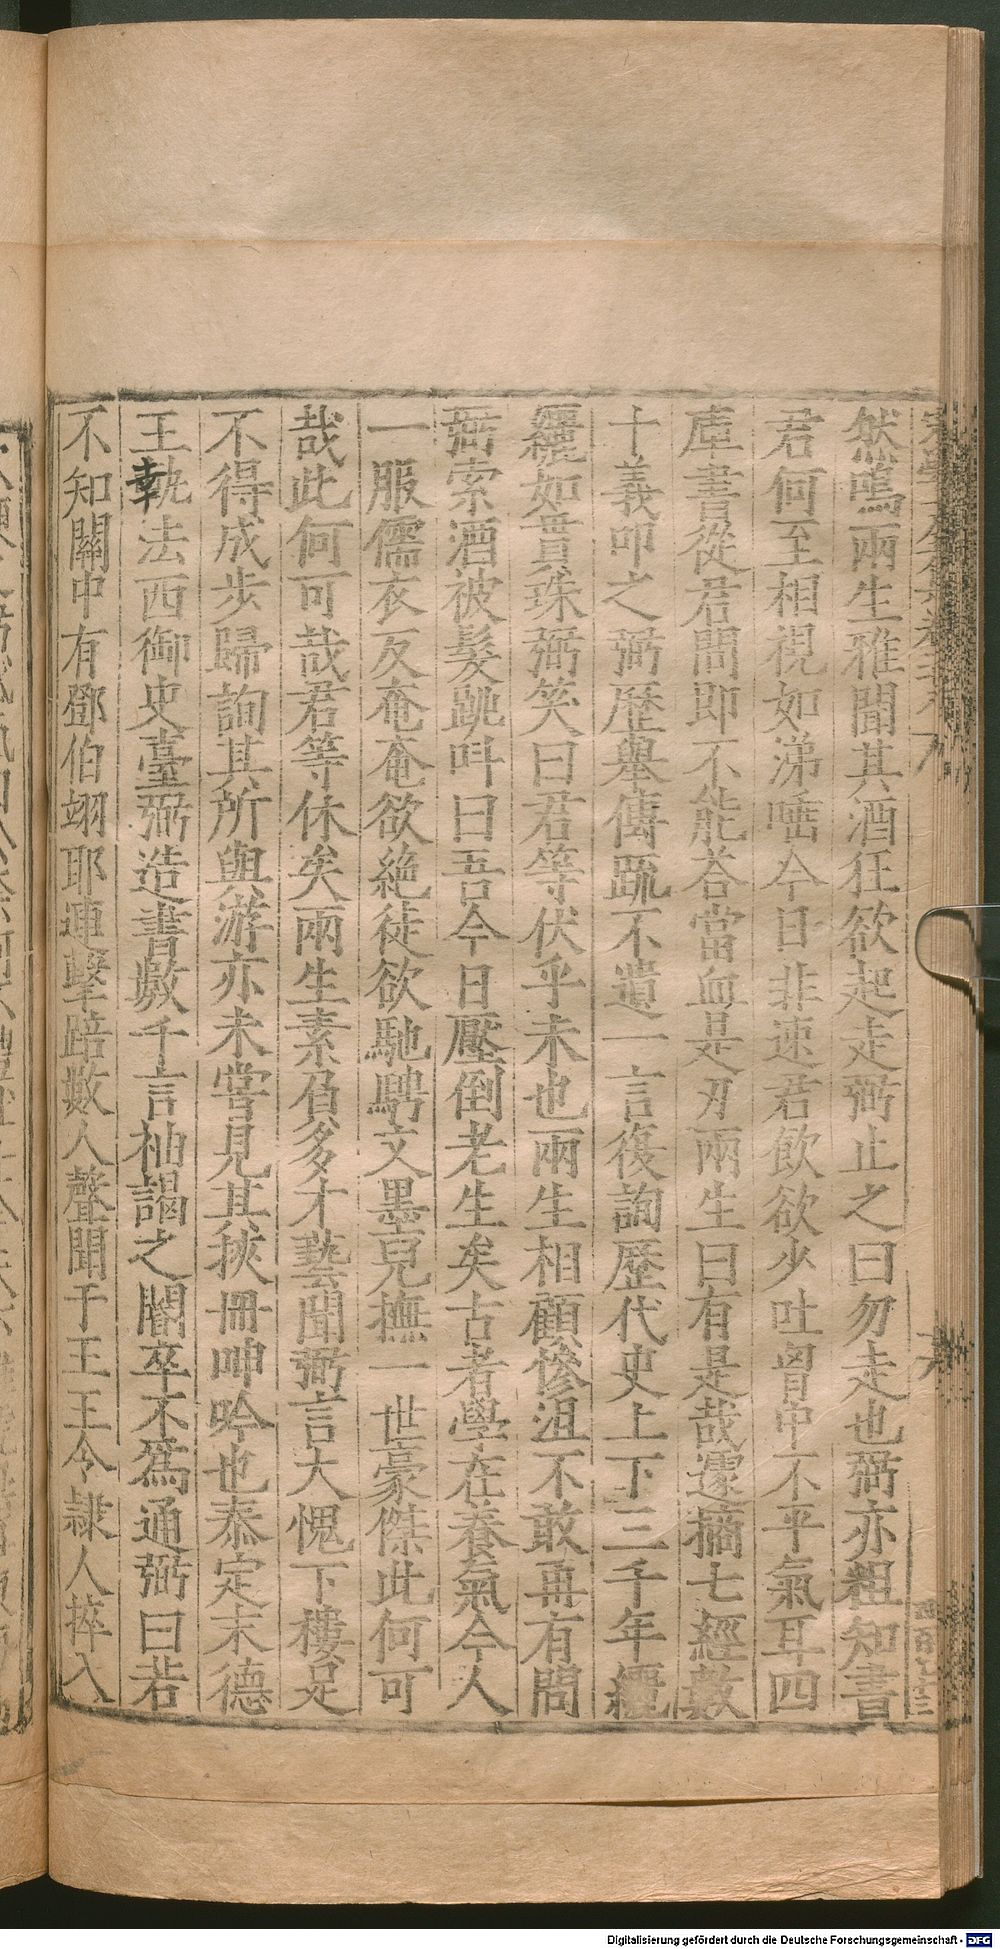 然鳴兩生雅聞其酒狂欲起走弼止之曰勿走也弼亦粗知書
君何至相視如涕唾今日非速君飲欲少吐胷中不平氣耳四
庫書從君問即不能荅當血是刃兩生曰有是哉遽摘七經數
十義叩之弼歷舉傳䟽不遺一言復詢歷代史上下三千年纚
纚如貫珠弼笑曰君等伏乎未也兩生相顧慘沮不敢再有問
弼索酒被髮跳呌曰吾今日壓倒老生矣古者學在養氣今人
一服儒衣反奄奄欲絶徒欲馳騁文墨兒撫一世豪傑此何可
哉此何可哉君等休矣兩生素負多才藝聞弼言大愧下樓足
不得成步歸詢其所與游亦未嘗見其挾冊呻吟也泰定末德
王執法西御史臺弼造書數千言袖謁之閽卒不爲通弼曰若
不知關中有鄧伯翊耶連擊踣數人聲聞于王王令隸人捽入
Digitalisierung gefördert durch die Deutsche Forschungsgemeinschaft - DFG